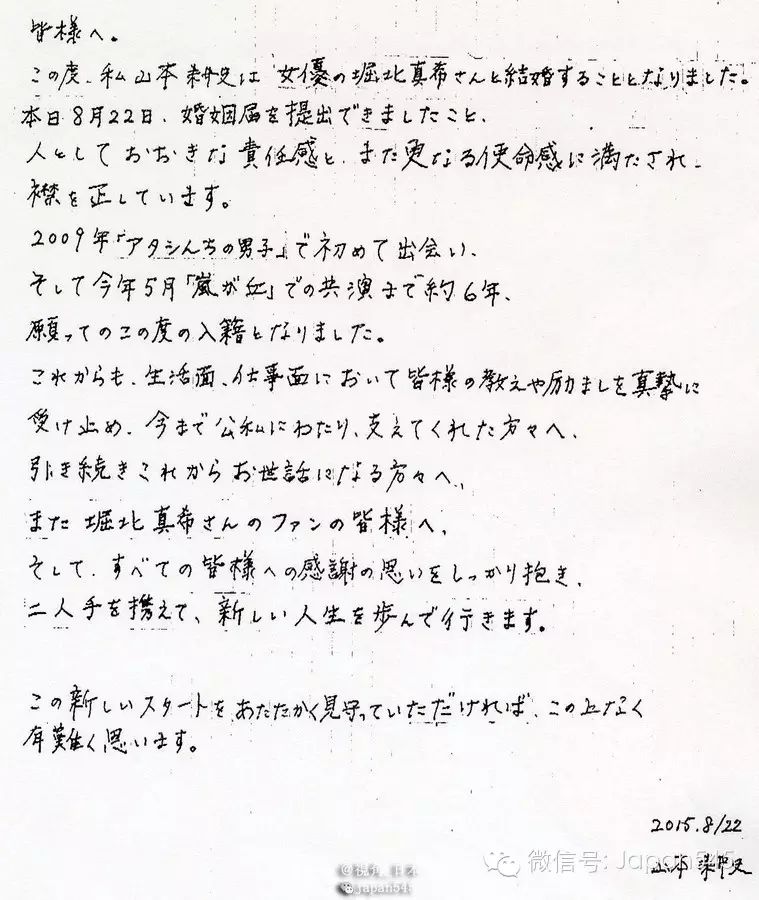 皆様へ。
この度、私 山本 耕史は 女優の堀北真希さんと結婚することとなりました。
本日8月22日、婚姻届を提出できましたこと、
人として おおきな 責任感と、また更なる使命感に満たされ、
襟を正しています。
2009年「アタシんちの男子」で初めて出会い、
そして今年5月「嵐が丘」での共演まで約6年、
願ってのこの度の入籍となりました。
これからも、生活面、仕事面において皆様の教えや励ましを真摯に
受け止め、今まで公私にわたり、支えてくれた方々へ、
引き続きこれからお世話になる方々へ、
また 堀北真希さんのファンの皆様へ、
そして、すべての皆様への感謝の思いをしっかり抱き、
二人手を携えて、新しい人生を歩んで行きます。
この新しいスタートをあたたかく見守っていただければ、この上なく
有難く思います。
2015.8/22
山本 耕史
微信号: Japan545
@視角_日本
japan545